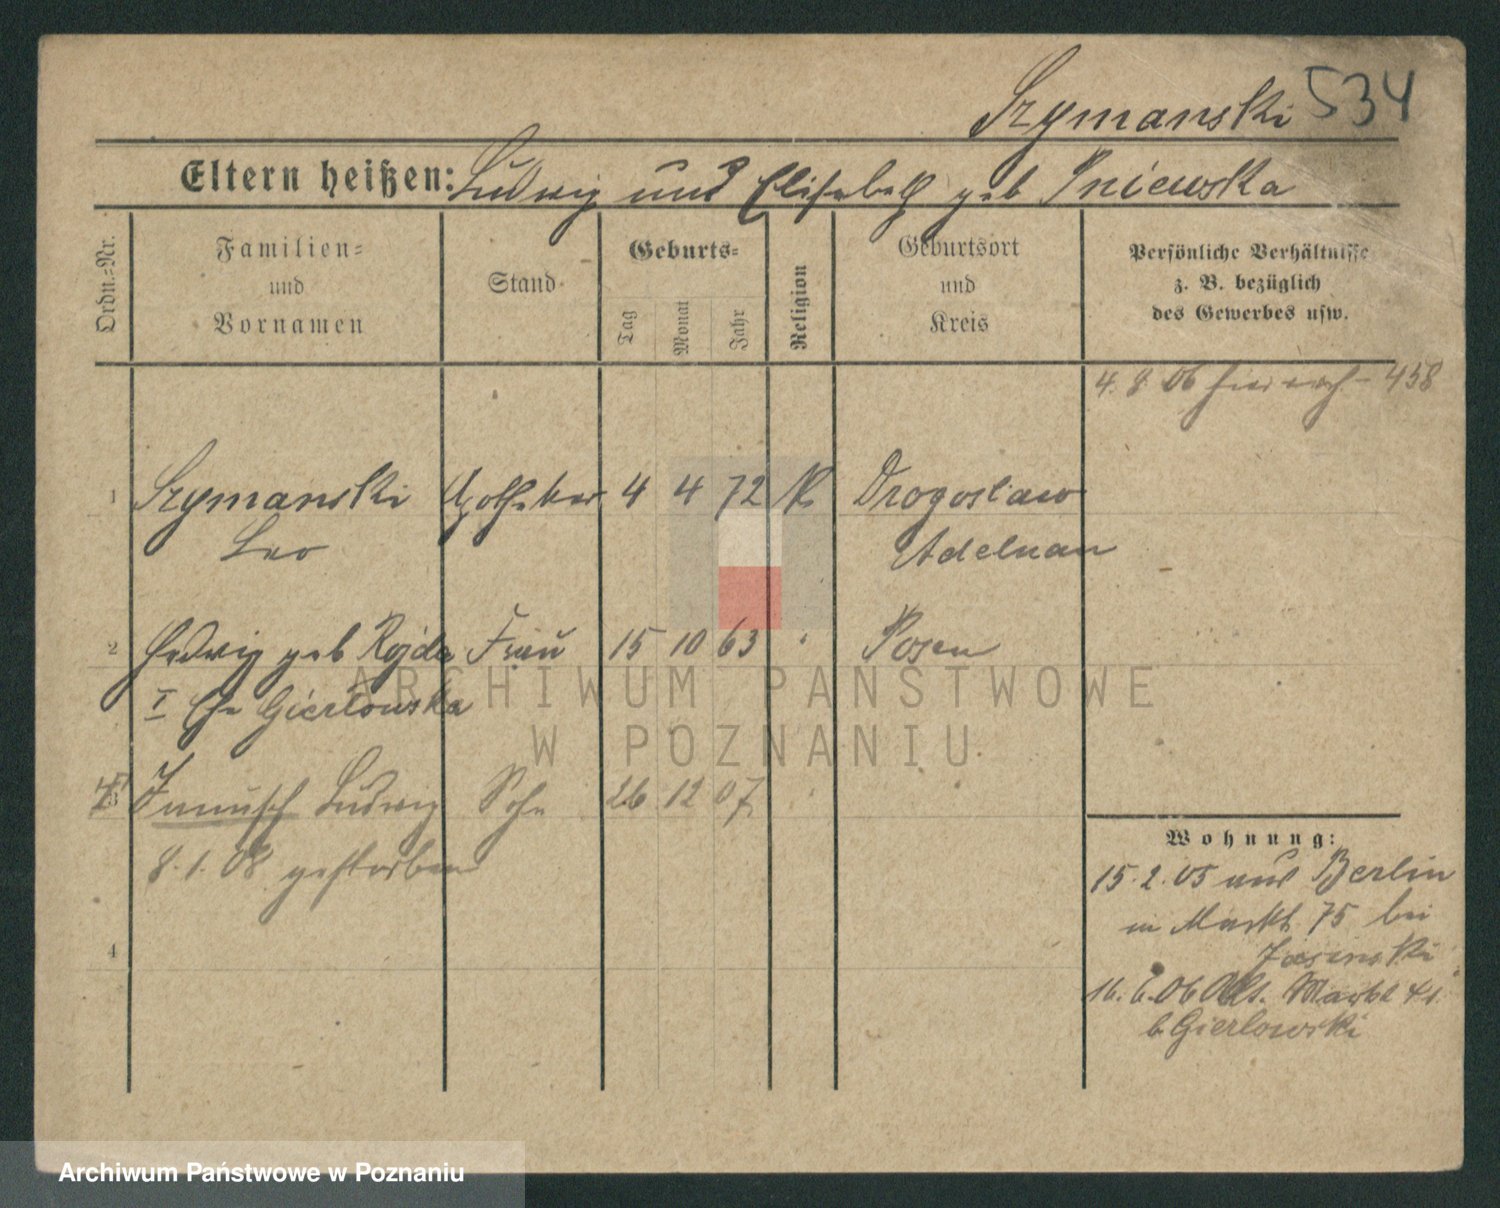 Szymanski 534
Eltern heißen: Ludwig und Elisabeth geb Pniewska
Ordn.-Nr.
Familien-
und
Vornamen
Stand
Geburts-
Tag
Monat
Jahr
Religion
Geburtsort
und
Kreis
Persönliche Verhältnisse
z. B. bezüglich
des Gewerbes usw.
4. 8. 06 458
1 Szymanski Apotheker 4 4 72 K Drogoslaw
Leo Adelnau
2 Hedwig geb Rojda Frau 15 10 63 " Posen
I Ehe Gierlowska
3 Ludwig Sohn 26 12 07 "
8. 1. 08 gestorben
4
Wohnung:
15. 2. 05 aus Berlin
in Markt 75 bei
Jasinski
16. 6. 06 Alt. Markt 41.
b. Gierlowski
ARCHIWUM PAŃSTWOWE
W POZNANIU
Archiwum Państwowe w Poznaniu